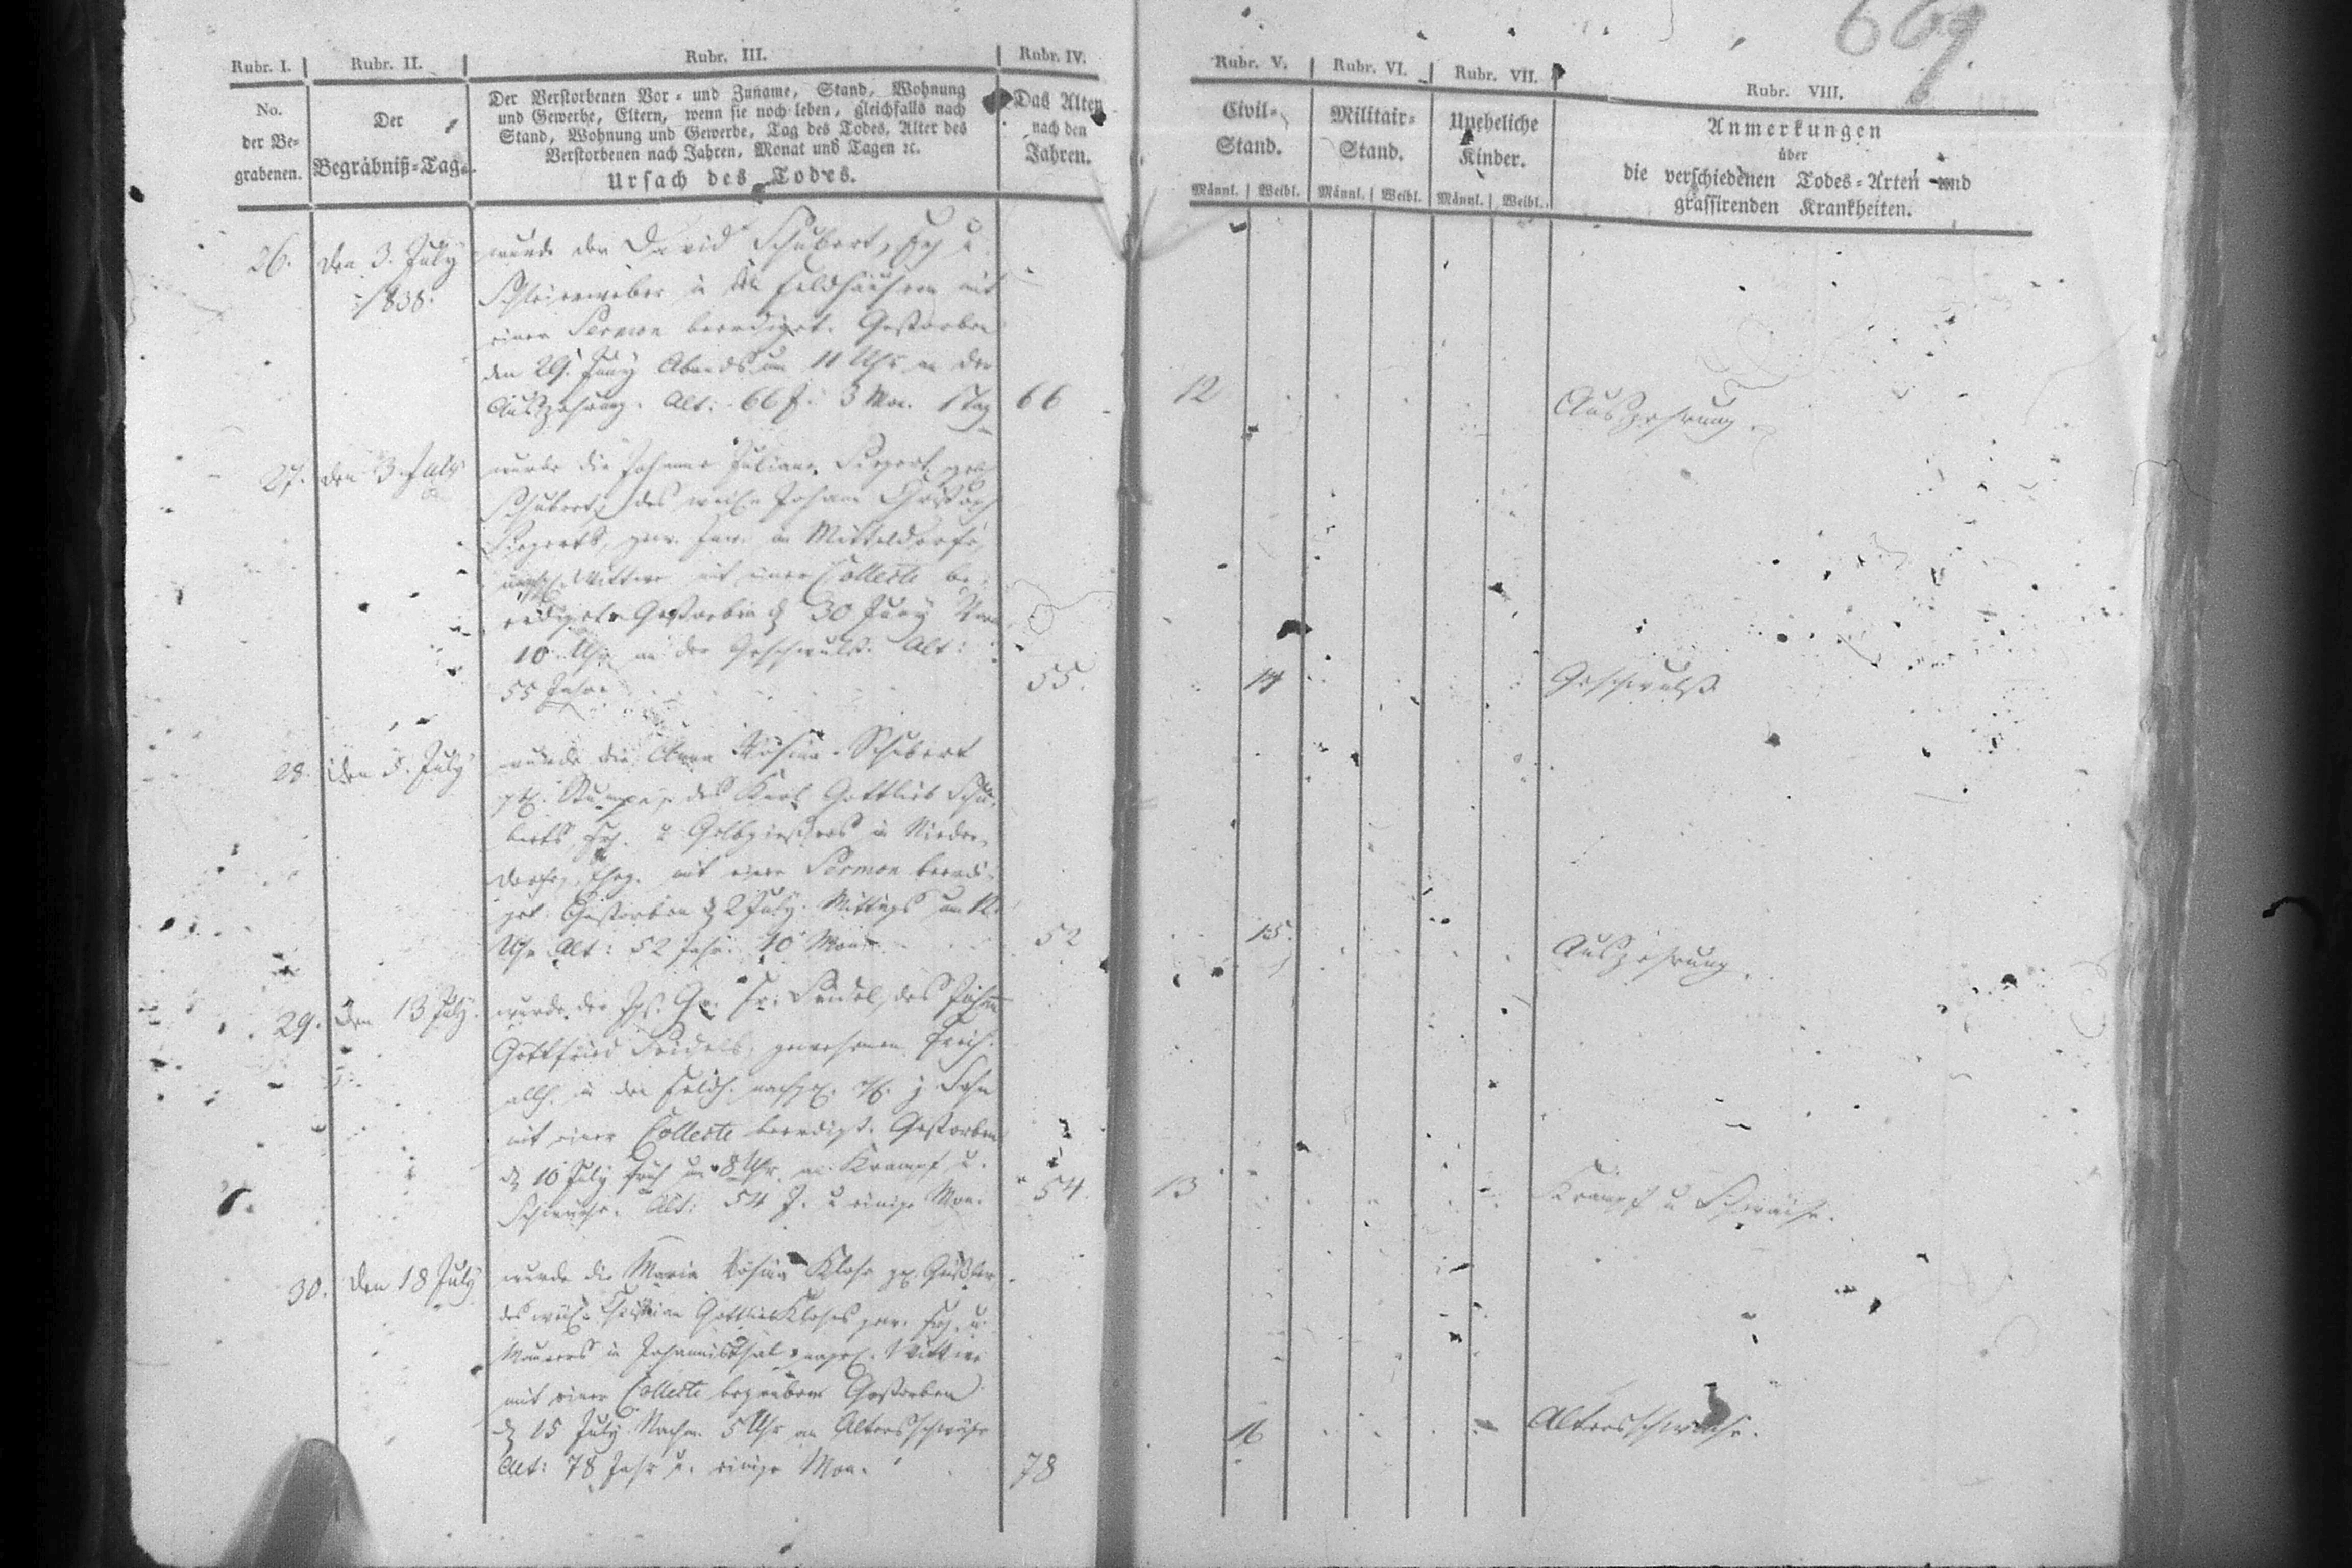 669.
Rubr. I.
No.
der Be-
grabenen.
Rubr. II.
Der
Begräbniß-Tag.
Rubr. III.
Der Verstorbenen Vor- und Zuname, Stand, Wohnung
und Gewerbe, Eltern, wenn sie noch leben, gleichfalls nach
Stand, Wohnung und Gewerbe, Tag des Todes, Alter des
Verstorbenen nach Jahren, Monat und Tagen ꝛc.
Ursach des Todes.
Rubr. IV.
Das Alter
nach den
Jahren.
Rubr. V.
Civil-
Stand.
Männl. Weibl.
Rubr. VI.
Militair-
Stand.
Männl. Weibl.
Rubr. VII.
Uneheliche
Kinder.
Männl. Weibl.
Rubr. VIII.
Anmerkungen
über
die verschiedenen Todes-Arten und
grassirenden Krankheiten.
26.
den 3. July
1838.
wurde der David Schubert, u
Schleierweber in Feldhäusern mit
einer Sermon beerdiget. Gestorben
den 29. Juny Abends um 11 Uhr an der
Auszehrung. Alt: 66 J. 3 Mon. 1 Tag
66
12
Auszehrung.
27.
den 3. July
wurde die Johanne Juliane
Schubert, des weil. Johann Christoph
in Mitteldorfe,
Wittwe mit einer Collecte be-
erdiget. Gestorben d. 30 Juny
10 Uhr an der Geschwulst. Alt:
55 Jahre
55.
14
Geschwulst
28.
den 5. July
wurde die Anna Rosina Schubert
des Karl Gottlieb Schu-
berts u Gelbgießers in Nieder-
dorfe, mit einer Sermon beerdi-
get. Gestorben d. 2 July Mittags um 12
Uhr Alt: 52 Jahr 10 Mon.
52
15.
Auszehrung.
29.
den 13 July.
wurde der Seidel, des
Gottfried Seidels, gewesenen
allh. in den Sohn
mit einer Collecte beerdigt. Gestorben
d. 10 July früh um 8 Uhr an Krampf u.
Schwäche. Alt: 54 J. u einige Mon.
54.
13
Krampf u Schwäche.
30.
den 18 July
wurde die Maria Rosina Klose
des weil. Christian Gottlieb Kloses gew. u
Maurers in Johannisthal Wittwe
mit einer Collecte begraben Gestorben
d. 15 July Nachm. 5 Uhr an Altersschwäche
Alt: 78 Jahr u. einige Mon.
78
16
Altersschwäche.